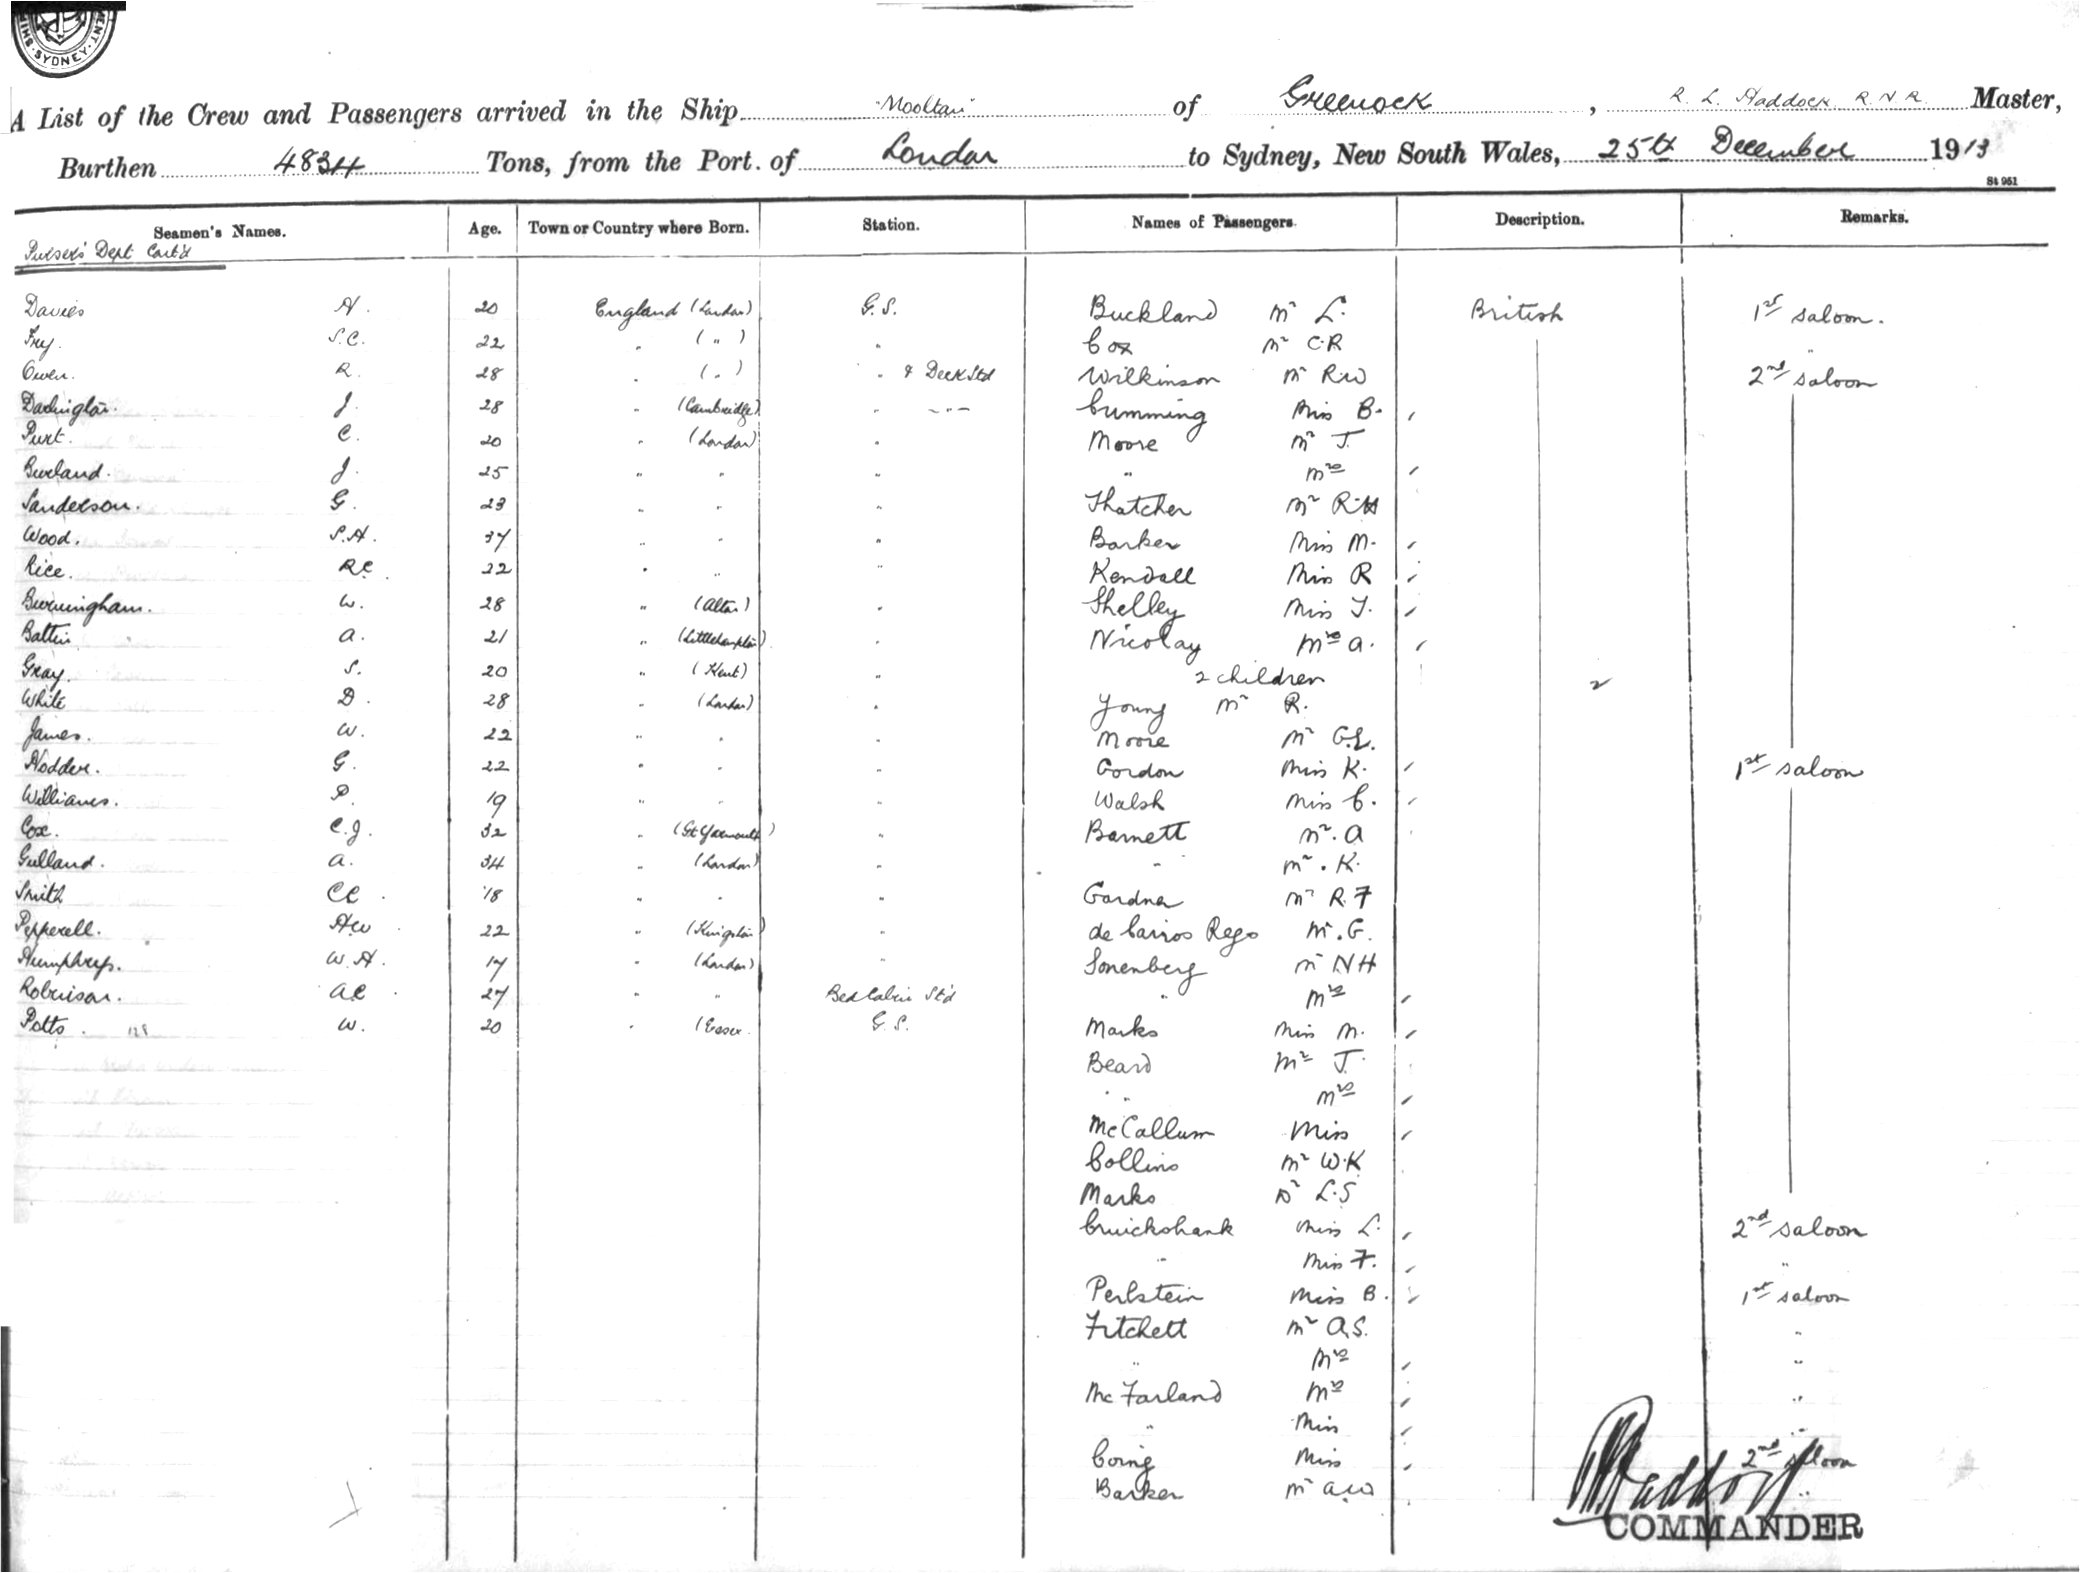 SYDNEY
A List of the Crew and Passengers arrived in the Ship "Mooltan" of Greenock, R. L. Haddock R.N.R. Master,
Burthen 4834 Tons, from the Port of London to Sydney, New South Wales, 25th December 1913
St 951
Seamen's Names. Age. Town or Country where Born. Station. Names of Passengers. Description. Remarks.
Purser's Dept Cont'd
Davies A. 20 England (London) G.S. Buckland Mr L. British 1st saloon.
Fry. S.C. 22 " ( " ) " Cox Mr C.R "
Owen. R. 28 " ( " ) " & Deck Std Wilkinson Mr R.W 2nd saloon
Darlington. J. 28 " (Cambridge) " - " - Cumming Miss B.
Purt. C. 20 " (London) " Moore Mr J.
Burland. J. 25 " " " " Mrs
Sanderson. G. 23 " " " Thatcher Mr R.H
Wood. S.H. 37 " " " Barker Miss M.
Rice. R.C. 22 " " " Kendall Miss R
Burningham. W. 28 " (Alton) " Shelley Miss J.
Battin A. 21 " (Littlehampton) " Nicolay Mrs A.
Gray. S. 20 " (Kent) " 2 children 2
White D. 28 " (London) " Young Mr R.
James. W. 22 " " " Moore Mr G.L.
Hodder. G. 22 " " " Gordon Miss K. 1st saloon
Williams. P. 19 " " " Walsh Miss C.
Cox. C.J. 32 " (Gt Yarmouth) " Barnett Mr. A
Gulland. A. 34 " (London) " " Mr. K.
Smith CC. 18 " " " Gardner Mr R.F
Pepperell. HW 22 " (Kingston) " de Barros Rego Mr. G.
Humphrys. W.H. 17 " (London) " Sonenberg Mr N H
Robinson. AE. 27 " " Bed Cabin Std " Mrs
Potts. 128 W. 20 " (Essex G.S. Marks Miss M.
Beard Mr J.
" " Mrs
McCallum Miss
Collins Mr W.K
Marks Dr L.S
Cruickshank Miss L. 2nd saloon
" Miss F. "
Perlstein Miss B. 1st saloon
Fitchett Mr A.S. "
" Mrs "
McFarland Mrs "
" Miss "
Going Miss 2nd saloon
Barker Mr A.W "
COMMANDER